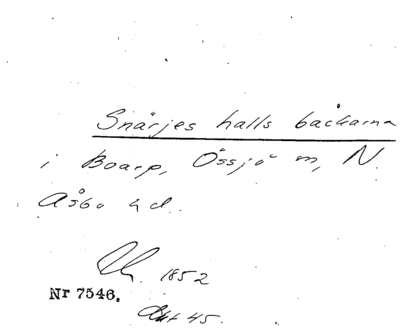 Snärjes halls backarna
i Boarp, Össjö sn, N.
Åsbo hd.
1852
Nr 7546.
Akt 45.